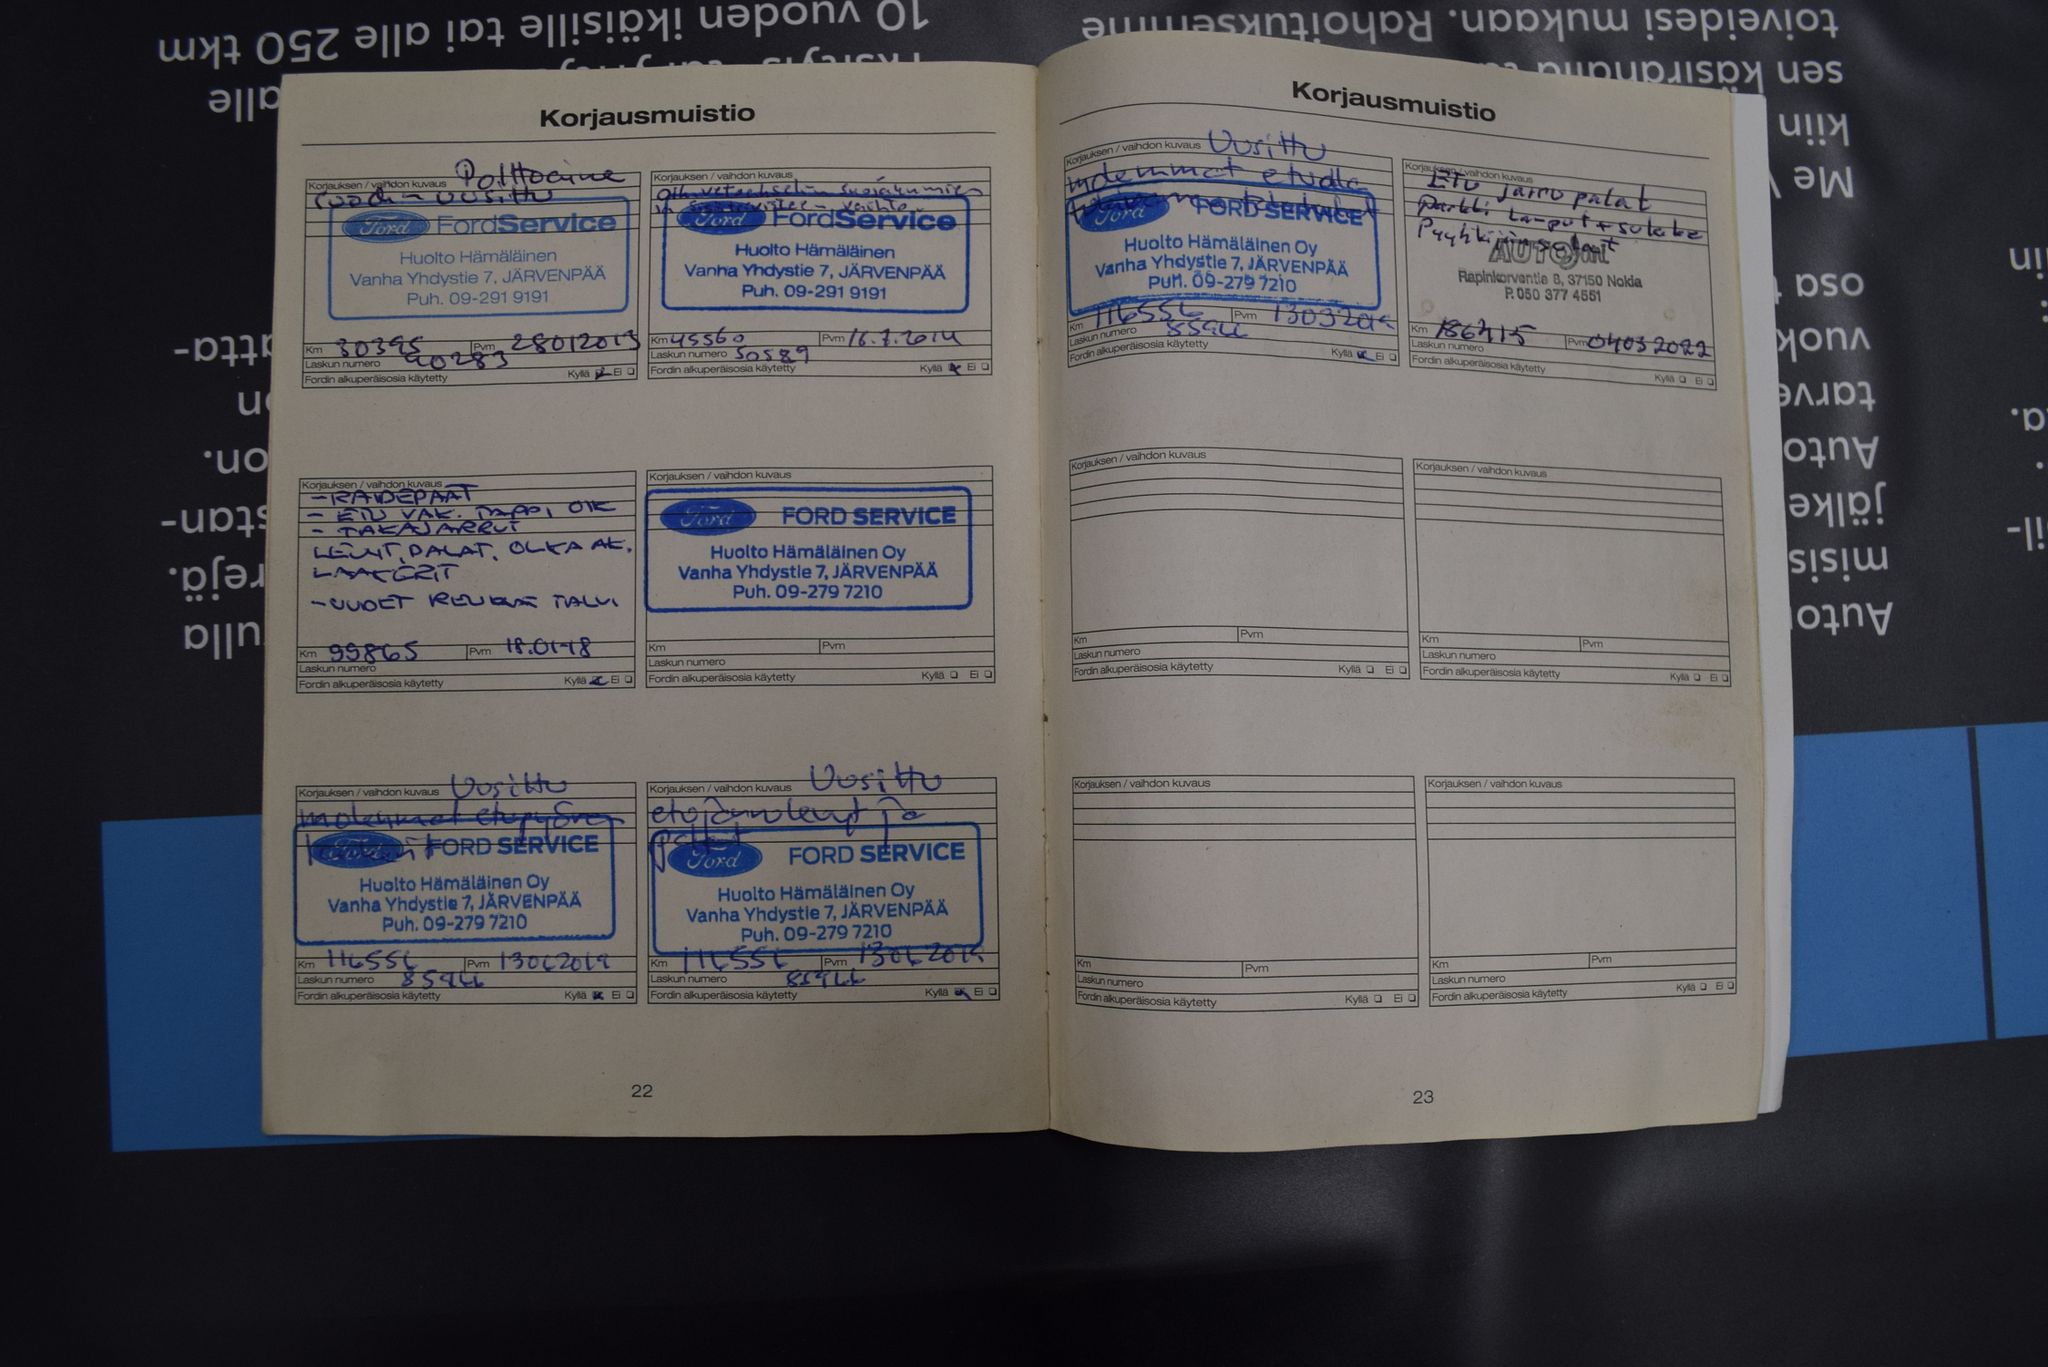 10 vuoden ikäisille tai alle 250 tkm
alle
toiveidesi mukaan. Rahoituksemme
sen käsirahalla
kiin
Me
osa
vuok
tarve
Auto
jälke
misis
Auto
Korjausmuistio
Korjauksen / vaihdon kuvaus Polttoaine
uusittu
Ford FordService
Huolto Hämäläinen
Vanha Yhdystie 7, JÄRVENPÄÄ
Puh. 09-291 9191
Km 30395 Pvm 28012013
Laskun numero 40283
Fordin alkuperäisosia käytetty Kyllä Ei
Korjauksen / vaihdon kuvaus
vaihto
Ford FordService
Huolto Hämäläinen
Vanha Yhdystie 7, JÄRVENPÄÄ
Puh. 09-291 9191
Km 45560 Pvm 16.7.2014
Laskun numero 50589
Fordin alkuperäisosia käytetty Kyllä Ei
Korjauksen / vaihdon kuvaus
- RAIDEPÄÄT
- ETU VAK. TAPPI, OIK
- TAKAJARRUT
LEVYT, PALAT, OLKA AK.
LAAKERIT
- UUDET RENKAAT TALVI
Km 99865 Pvm 18.01-18
Laskun numero
Fordin alkuperäisosia käytetty Kyllä Ei
Korjauksen / vaihdon kuvaus
Ford FORD SERVICE
Huolto Hämäläinen Oy
Vanha Yhdystie 7, JÄRVENPÄÄ
Puh. 09-279 7210
Km Pvm
Laskun numero
Fordin alkuperäisosia käytetty Kyllä Ei
Korjauksen / vaihdon kuvaus Uusittu
molemmat etupyörän
Ford FORD SERVICE
Huolto Hämäläinen Oy
Vanha Yhdystie 7, JÄRVENPÄÄ
Puh. 09-279 7210
Km 116556 Pvm
Laskun numero
Fordin alkuperäisosia käytetty Kyllä Ei
Korjauksen / vaihdon kuvaus Uusittu
etujarrulevyt ja
palat
Ford FORD SERVICE
Huolto Hämäläinen Oy
Vanha Yhdystie 7, JÄRVENPÄÄ
Puh. 09-279 7210
Km 116556 Pvm
Laskun numero
Fordin alkuperäisosia käytetty Kyllä Ei
22
Korjausmuistio
Korjauksen / vaihdon kuvaus Uusittu
molemmat etuala
Ford FORD SERVICE
Huolto Hämäläinen Oy
Vanha Yhdystie 7, JÄRVENPÄÄ
Puh. 09-279 7210
Km 116556 Pvm
Laskun numero
Fordin alkuperäisosia käytetty Kyllä Ei
Korjauksen / vaihdon kuvaus
Etu jarru palat
parkki
Pyyhkijän sulat
Rapinkorventie 8, 37150 Nokia
P. 050 377 4551
Km Pvm 04032022
Laskun numero
Fordin alkuperäisosia käytetty Kyllä Ei
Korjauksen / vaihdon kuvaus
Km Pvm
Laskun numero
Fordin alkuperäisosia käytetty Kyllä Ei
Korjauksen / vaihdon kuvaus
Km Pvm
Laskun numero
Fordin alkuperäisosia käytetty Kyllä Ei
Korjauksen / vaihdon kuvaus
Km Pvm
Laskun numero
Fordin alkuperäisosia käytetty Kyllä Ei
Korjauksen / vaihdon kuvaus
Km Pvm
Laskun numero
Fordin alkuperäisosia käytetty Kyllä Ei
23